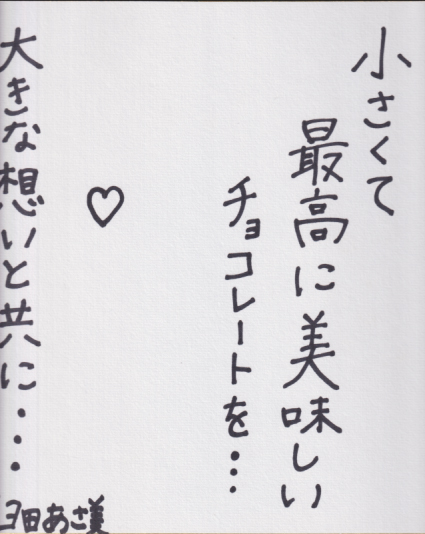 小さくて
最高に美味しい
チョコレートを・・・
♡
大きな想いと共に・・・・
田あさ美